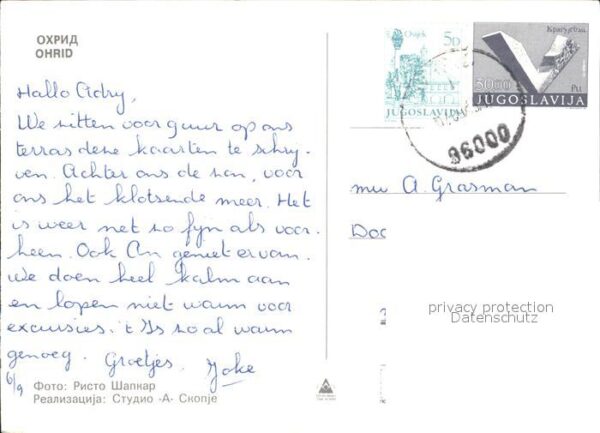 ОХРИД
OHRID
Hallo Adry,
We zitten voor guur op ons
terras deze kaarten te schry-
ven. Achter ons de zon, voor
ons het klotsende meer. Het
is weer net zo fijn als voor-
heen. Ook An geniet ervan.
We doen heel kalm aan
en lopen niet warm voor
excursies. 't Is zo al warm
genoeg. Groetjes. Joke
6/9
Фото: Ристо Шапкар
Реализација: Студио -А- Скопје
Osijek
5D
JUGOSLAVIJA
Крагујевац
30.00
JUGOSLAVIJA
96000
mw A. Grasman
Doc
privacy protection
Datenschutz